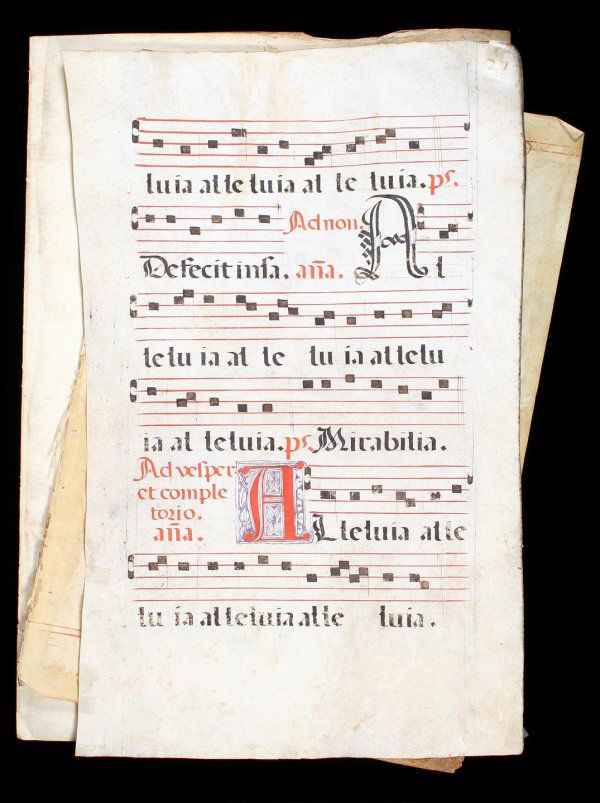 27
luia alleluia al le luia. ps.
Ad non. A
Defecit in sa. aña. l
leluia al le lu ia allelu
ia al leluia. ps. Mirabilia.
Ad vesper
et comple
torio.
aña. Alleluia alle
lu ia alleluia alle luia.